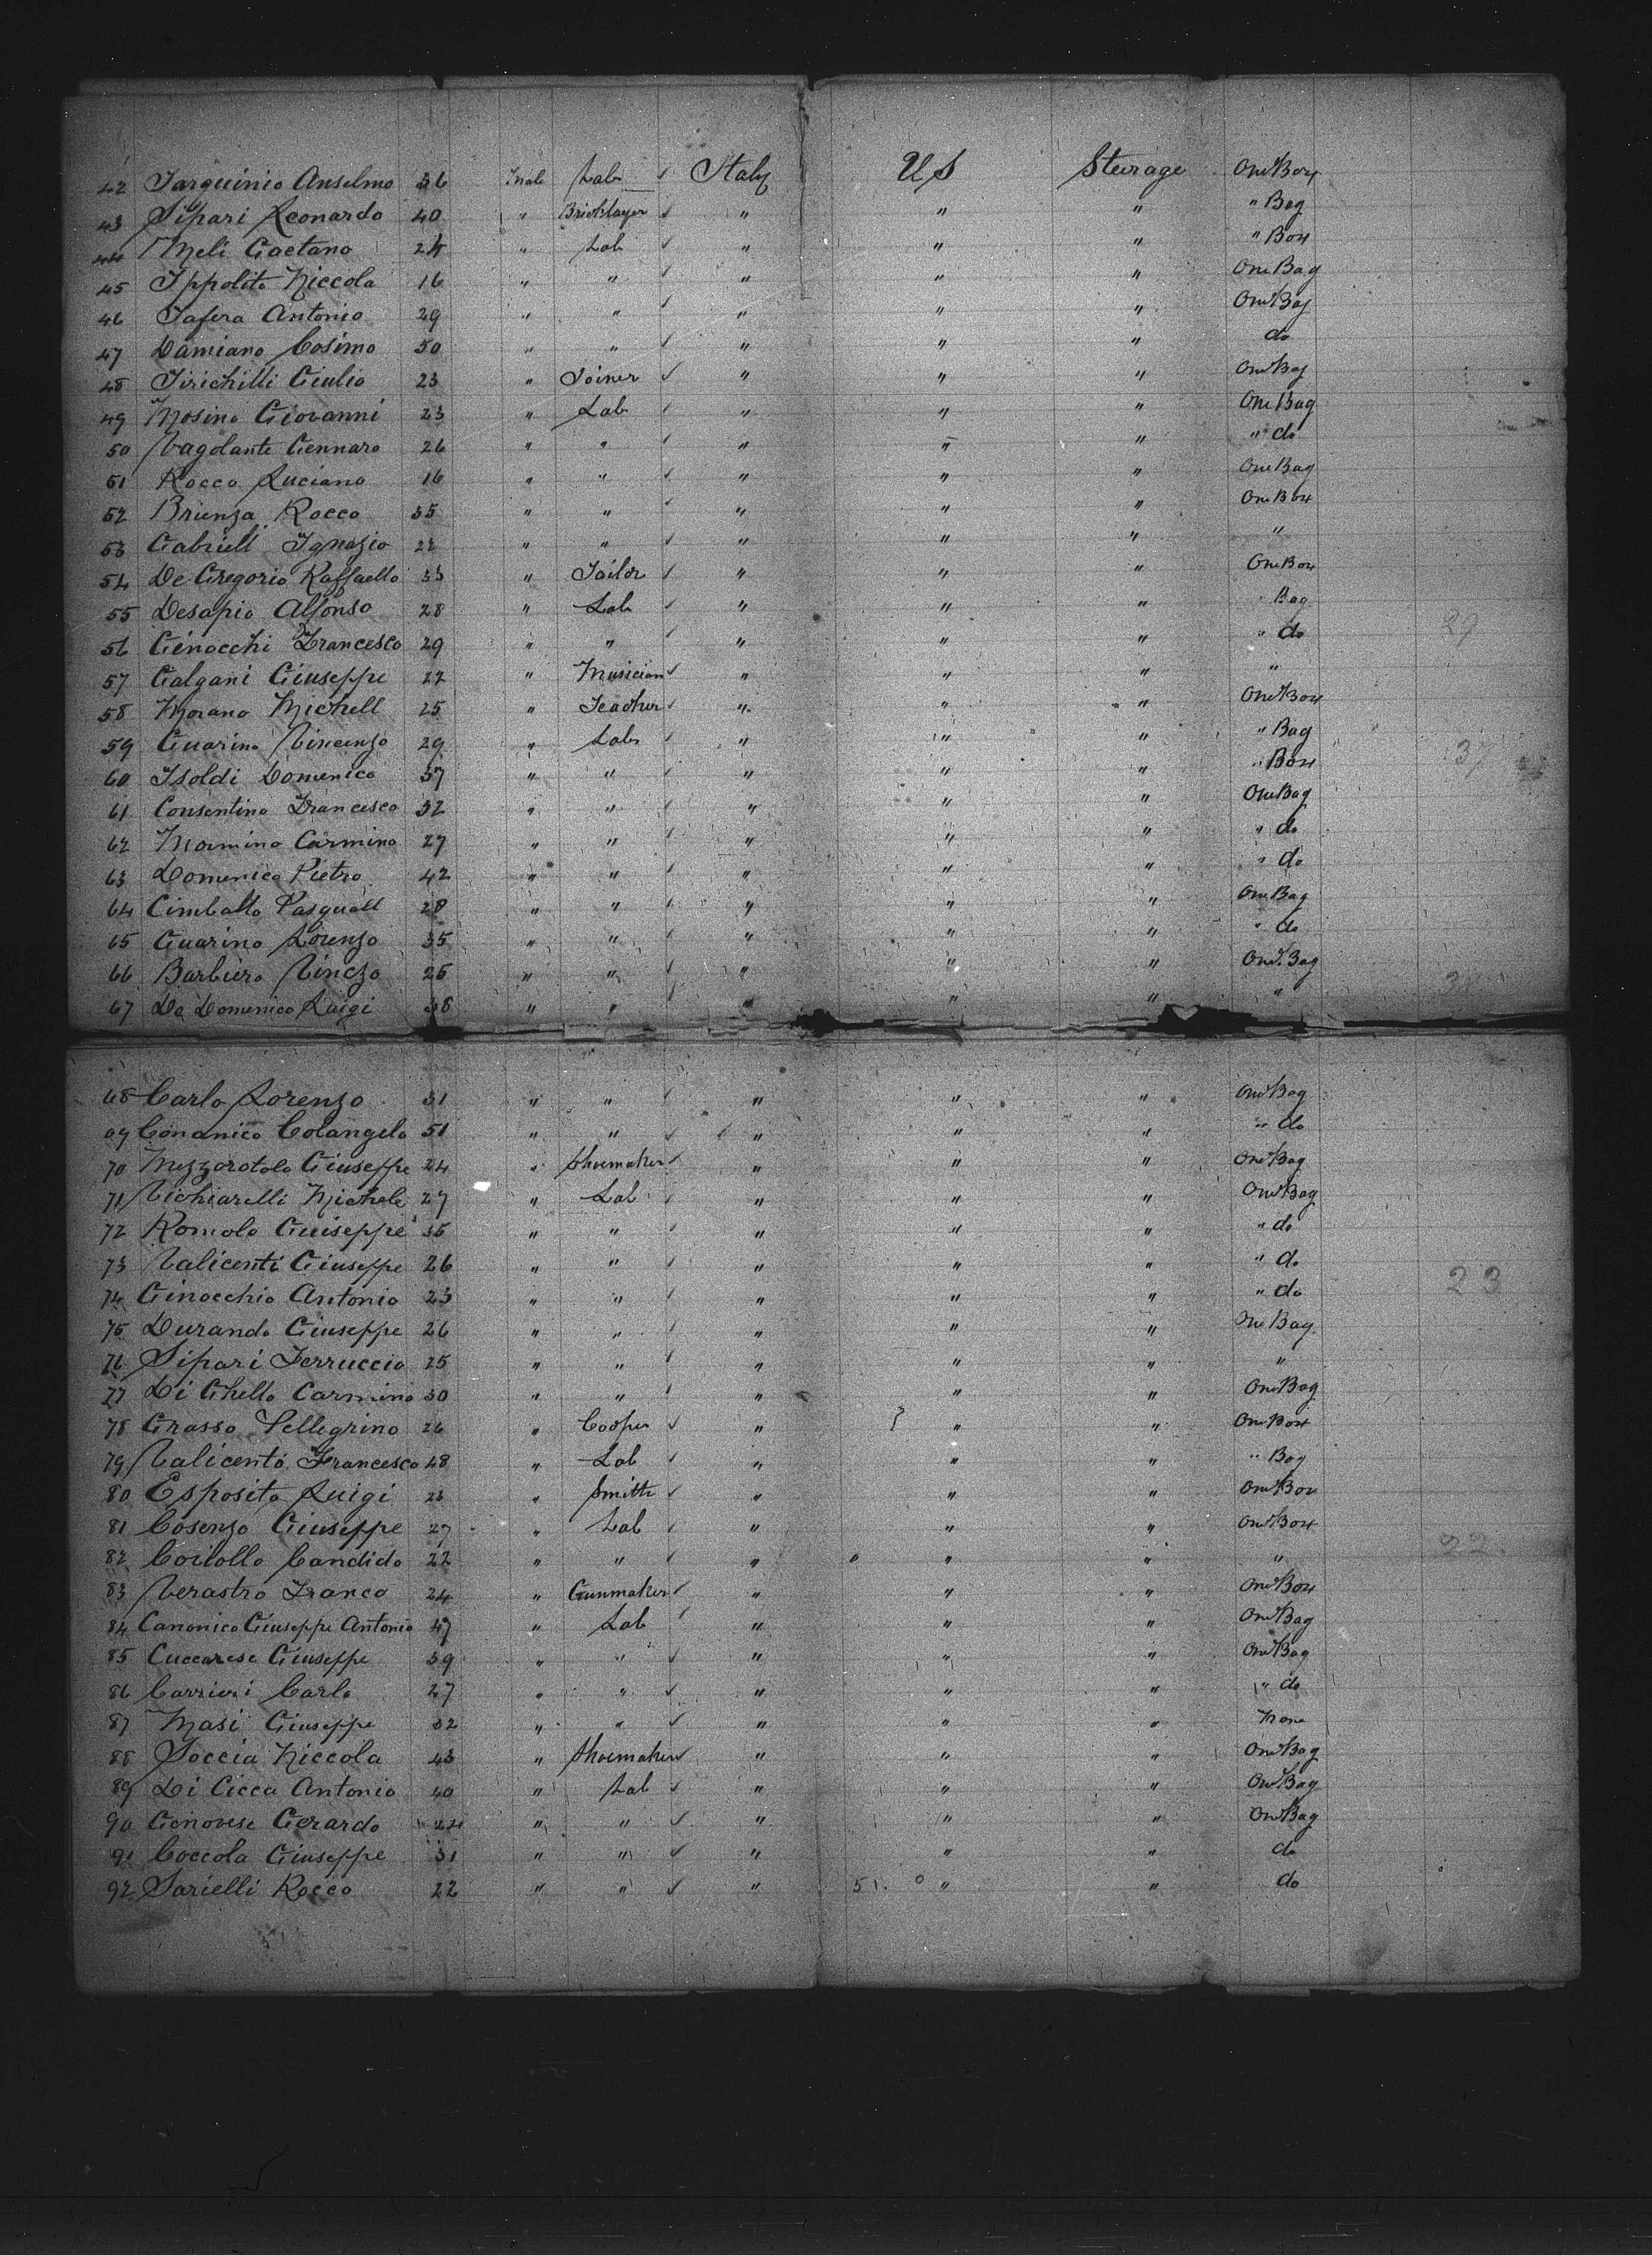 42 Tarquinio Anselmo 36 Male Lab ✓ Italy US Sterage One Box
43 Sipari Leonardo 40 " Bricklayer ✓ " " " " Bag
44 Meli Gaetano 24 " Lab ✓ " " " " Box
45 Ippolito Niccola 16 " " ✓ " " " One Bag
46 Tafera Antonio 29 " " ✓ " " " One Bag
47 Damiano Cosimo 50 " " ✓ " " " do
48 Tirichilli Giulio 23 " Joiner ✓ " " " One Bag
49 Mosino Giovanni 23 " Lab ✓ " " " One Bag
50 Vagolante Gennaro 26 " " ✓ " " " " do
51 Rocco Luciano 16 " " ✓ " " " One Bag
52 Brienza Rocco 35 " " ✓ " " " One Box
53 Gabriell Ignazio 22 " " ✓ " " " "
54 De Gregorio Raffaello 33 " Tailor ✓ " " " One Box
55 Desapio Alfonso 28 " Lab ✓ " " " " Bag
56 Genocchi Francesco 29 " " ✓ " " " " do 29
57 Galgani Giuseppe 22 " Musician ✓ " " " "
58 Morano Michell 25 " Teacher ✓ " " " One Box
59 Guarino Vincenzo 29 " Lab ✓ " " " " Bag
60 Isoldi Domenico 37 " " ✓ " " " " Box 37
61 Consentino Francesco 32 " " ✓ " " " One Bag
62 Mormino Carmino 27 " " ✓ " " " " do
63 Domenico Pietro 42 " " ✓ " " " " do
64 Cimballo Pasquall 28 " " ✓ " " " One Bag
65 Guarino Lorenzo 35 " " ✓ " " " " do
66 Barbiero Vinczo 25 " " ✓ " " " One Bag
67 De Domenico Luigi 38 " " ✓ " " " " 38
68 Carlo Lorenzo 31 " " ✓ " " " One Bag
69 Conanico Colangelo 51 " " ✓ " " " " do
70 Mezzorotolo Giuseppe 24 " Shoemaker ✓ " " " One Bag
71 Vichiarelli Michele 27 " Lab ✓ " " " One Bag
72 Romolo Guiseppe 35 " " ✓ " " " " do
73 Valicenti Giuseppe 26 " " ✓ " " " " do
74 Ginocchio Antonio 23 " " ✓ " " " " do 23
75 Durando Giuseppe 26 " " ✓ " " " One Bag
76 Sipari Ferruccio 25 " " ✓ " " " "
77 Di Ghello Carmino 30 " " ✓ " " " One Bag
78 Grasso Pellegrino 26 " Cooper ✓ " " " One Box
79 Valicenti Francesco 48 " Lab ✓ " " " " Bag
80 Esposito Luigi 23 " Smith ✓ " " " One Box
81 Cosenzo Giuseppe 27 " Lab ✓ " " " One Box
82 Candido 22 " " ✓ " " " " 22
83 Verastro Franco 24 " Gunmaker ✓ " " " One Box
84 Canonico Giuseppe Antonio 47 " Lab ✓ " " " One Bag
85 Cuccarese Giuseppe 39 " " ✓ " " " One Bag
86 Carrieri Carlo 27 " " ✓ " " " " do
87 Masi Giuseppe 32 " " ✓ " " " None
88 Soccia Niccola 43 " Shoemaker ✓ " " " One Bag
89 Di Cicca Antonio 40 " Lab ✓ " " " One Bag
90 Genovese Gerardo 24 " " ✓ " " " One Bag
91 Coccola Giuseppe 31 " " ✓ " " " do
92 Sarielli Rocco 22 " " ✓ " 51. " " do